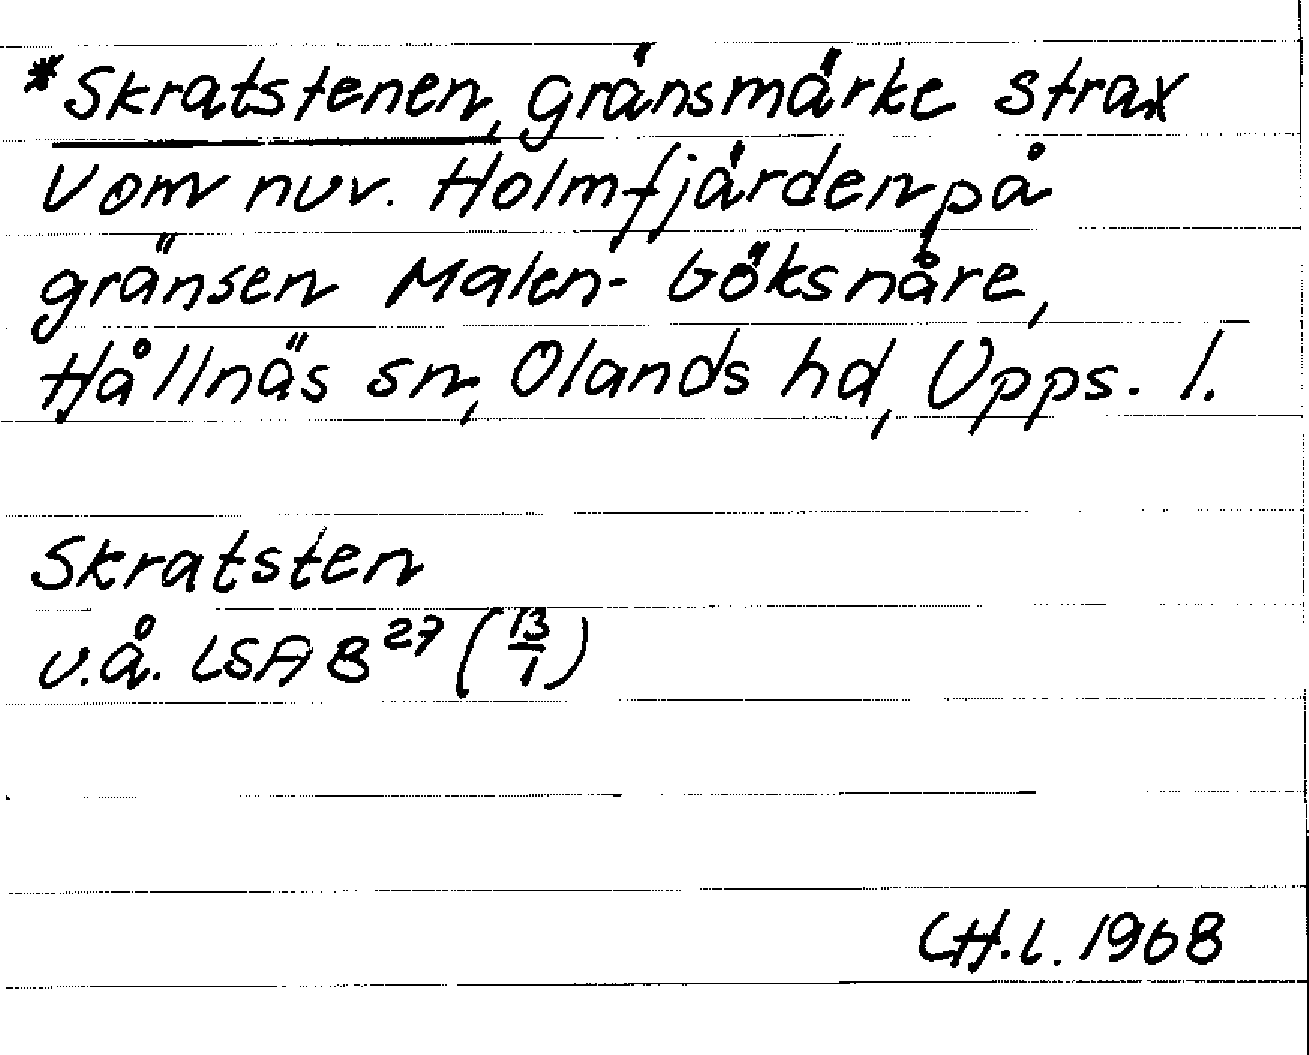 *Skratstenen, gränsmärke strax
V om nuv. Holmfjärden på
gränsen Malen-Böksnåre,
Hållnäs sn, Olands hd, Upps. l.
Skratsten
u.å. LSA B²⁷ (13/1)
CH.L. 1968